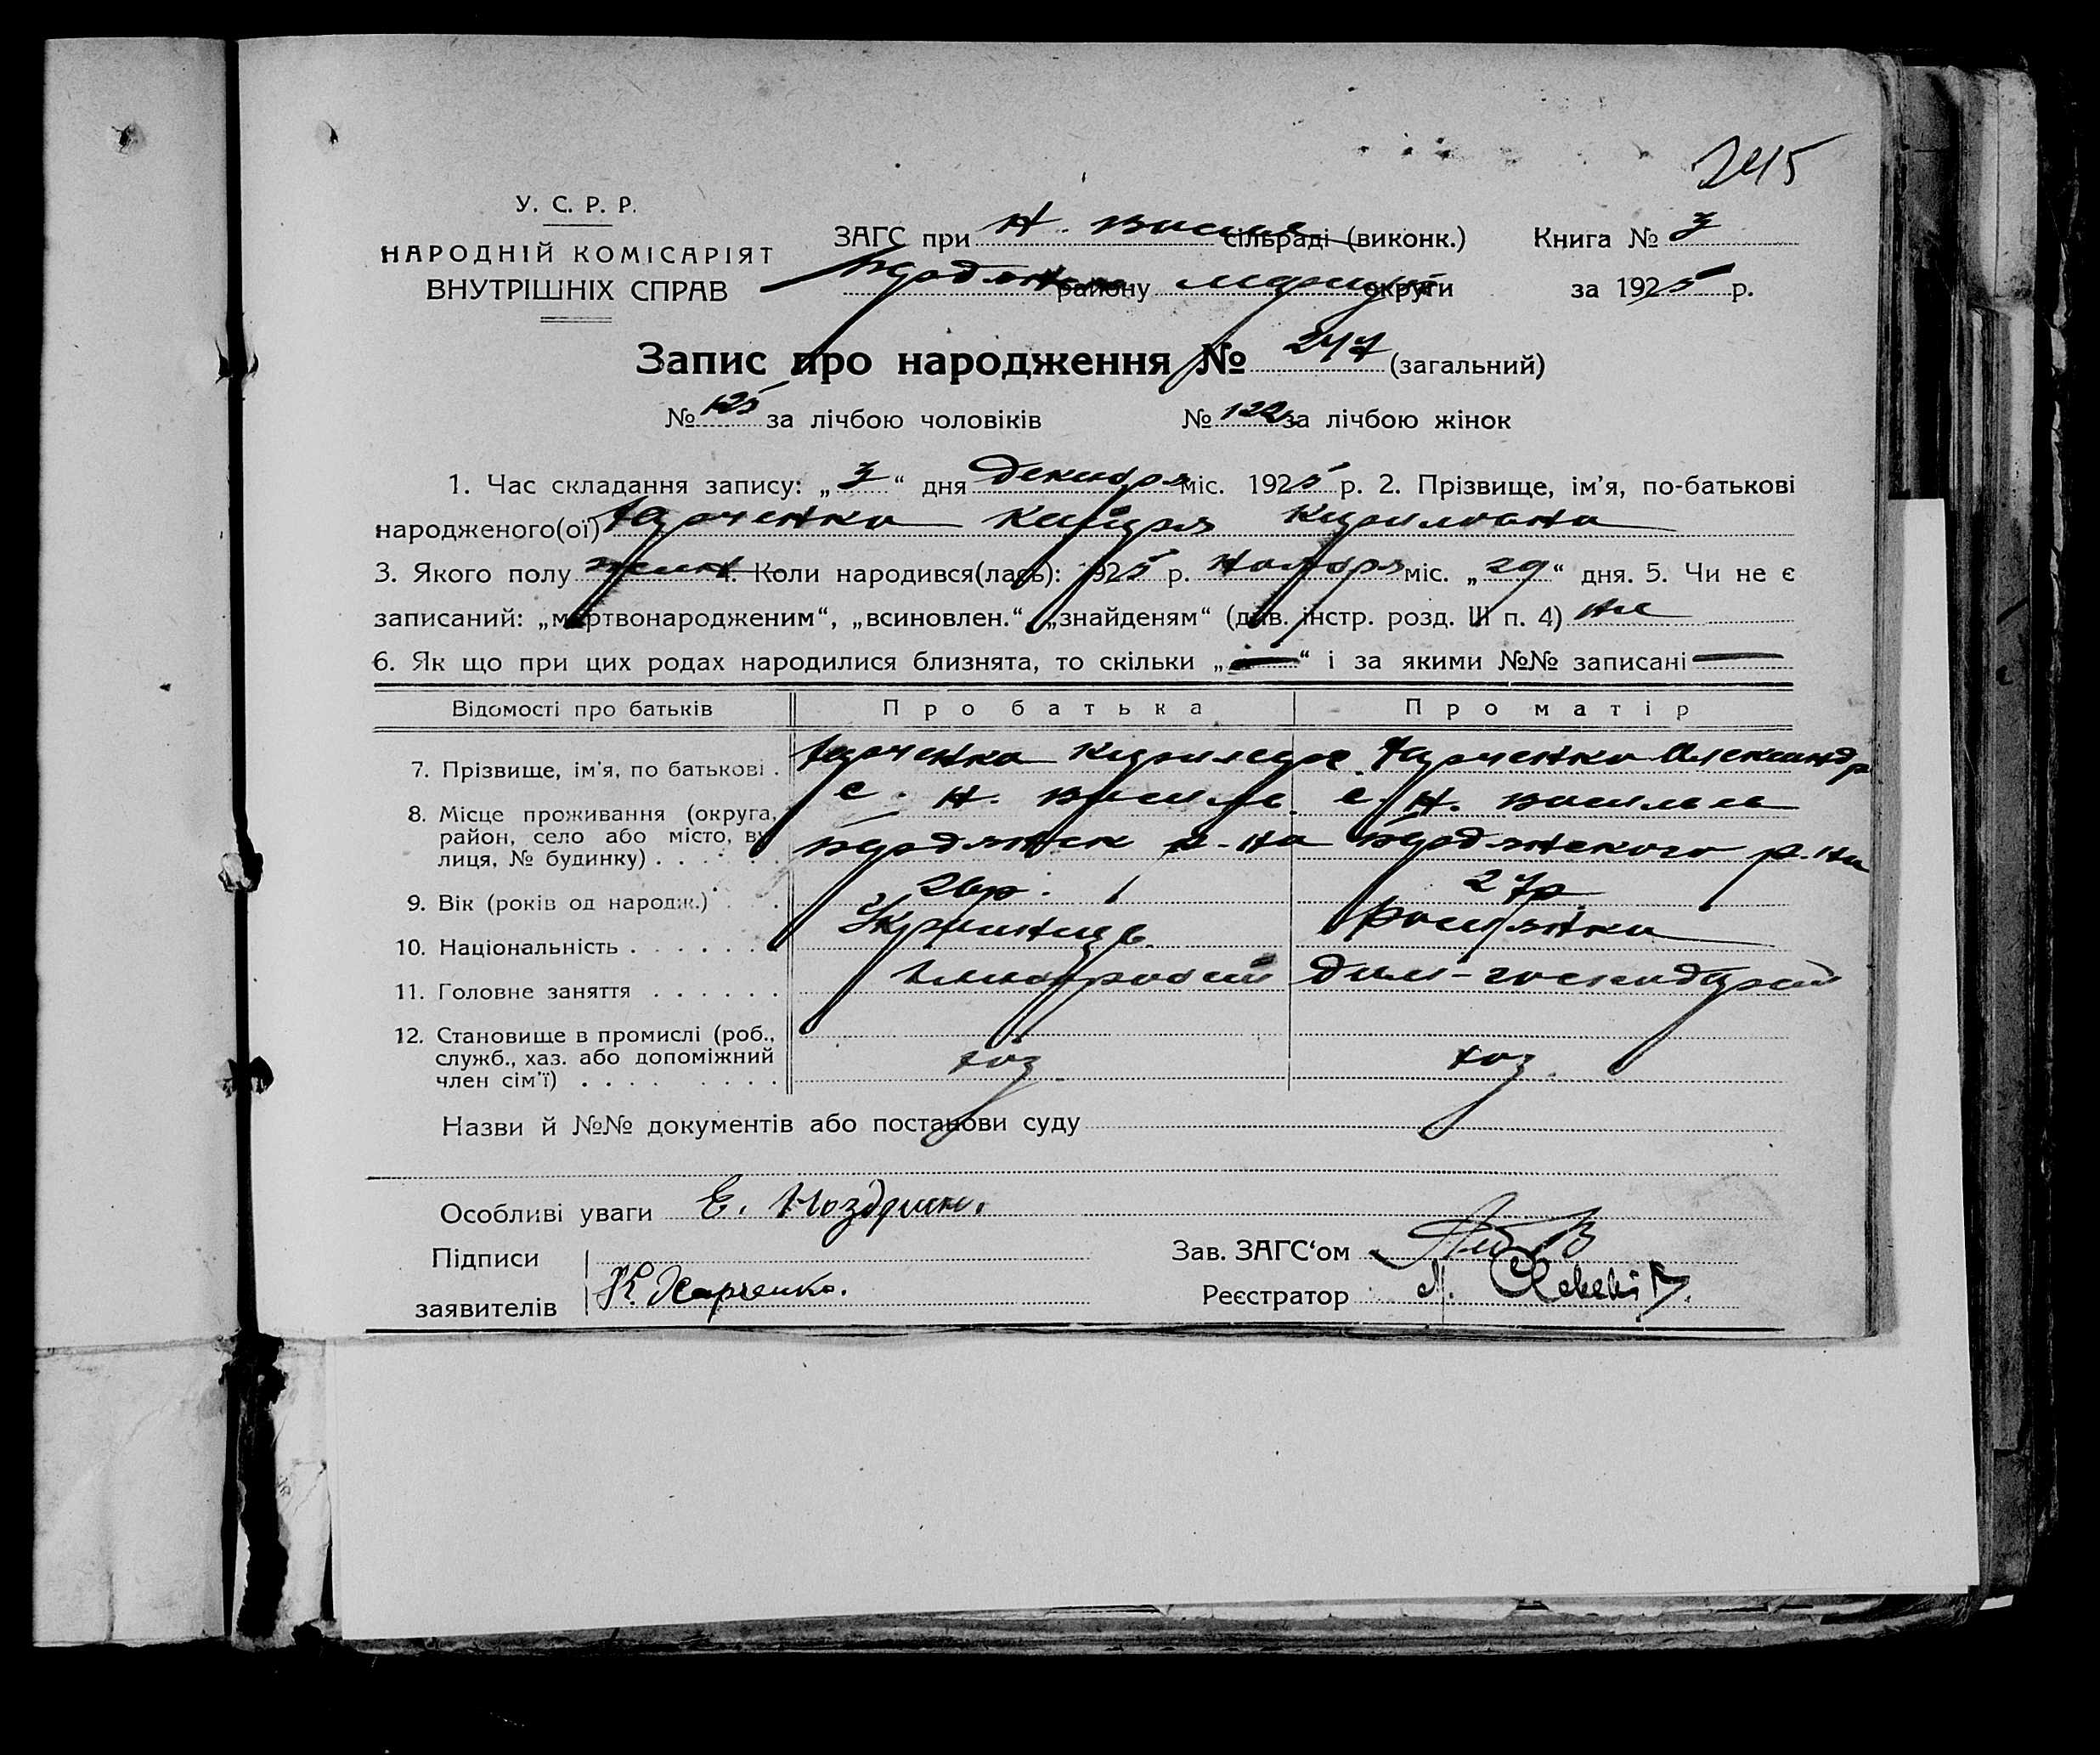 245
У. С. Р. Р.
НАРОДНІЙ КОМІСАРІЯТ
ВНУТРІШНІХ СПРАВ
ЗАГС при Н. Васил сільраді (виконк.) Книга № 3
району округи за 1925 р.
Запис про народження № 247 (загальний)
№ 125 за лічбою чоловіків № 122 за лічбою жінок
1. Час складання запису: „3“ дня декабря міс. 1925 р. 2. Прізвище, ім'я, по-батькові
народженого(ої) Харченко Кириловна
3. Якого полу жен 4. Коли народився(лась): 1925 р. Ноября міс. „29“ дня. 5. Чи не є
записаний: „мертвонародженим“, „всиновлен.“ „знайденям“ (див. інстр. розд. III п. 4) не
6. Як що при цих родах народилися близнята, то скільки „—“ і за якими №№ записані —
Відомості про батьків Про батька Про матір
7. Прізвище, ім'я, по батькові . Харченко Харченко Александр
8. Місце проживання (округа, с. Н. Василь с. Н. Василь
район, село або місто, ву-
лиця, № будинку) . . . . . Бердянск р-на Бердянского р-на
9. Вік (років од народж.) . . . 26 р. 27 р.
10. Національність . . . . . . Українець Росіянка
11. Головне заняття . . . . . . Хлібороб дом-господар
12. Становище в промислі (роб.,
служб., хаз. або допоміжний хоз хоз.
член сім'ї) . . . . . . . . .
Назви й №№ документів або постанови суду
Особливі уваги Е. Ноздрин.
Підписи Зав. ЗАГС'ом
заявителів К. Харченко. Реєстратор